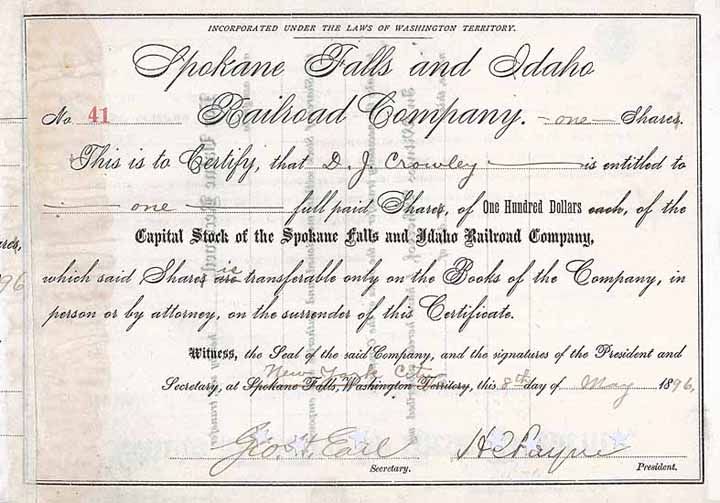 INCORPORATED UNDER THE LAWS OF WASHINGTON TERRITORY.
Spokane Falls and Idaho
No. 41 Railroad Company. one Shares.
This is to Certify, that D. J. Crowley is entitled to
one full paid Shares, of One Hundred Dollars each, of the
Capital Stock of the Spokane Falls and Idaho Railroad Company,
is
which said Shares are transferable only on the Books of the Company, in
person or by attorney, on the surrender of this Certificate.
Witness, the Seal of the said Company, and the signatures of the President and
New York City
Secretary, at Spokane Falls, Washington Territory, this 8th day of May 1896,
Geo. H. Earl H C Payne
Secretary. President.